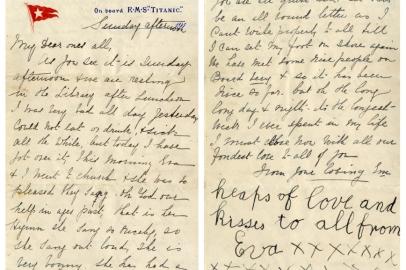 On board R.M.S. "TITANIC."
Sunday afternoon
My Dear ones all,
As you see it is Sunday
afternoon & we are resting
in the Library after Luncheon
I was very bad all day yesterday
Could not eat or drink, & sick
all the while, but today I have
got over it, this morning Eva
& I went to church & she was so
pleased they sang Oh God our
help in ages past, that is her
Hymn she sang so nicely, so
she sang out loud, she is
very bonny. she has had a
be an all round letter as I
Can't write properly to all till
I can set my foot on shore again
We have met some nice people on
Board Lucy & so it has been
nice so far. but oh the long
long days & nights its the longest
break I ever spent in my life
I must close now with all our
fondest love to all of you
From your loving Em
heaps of love and
kisses to all from
Eva x x x x x x x
x x x x x x x